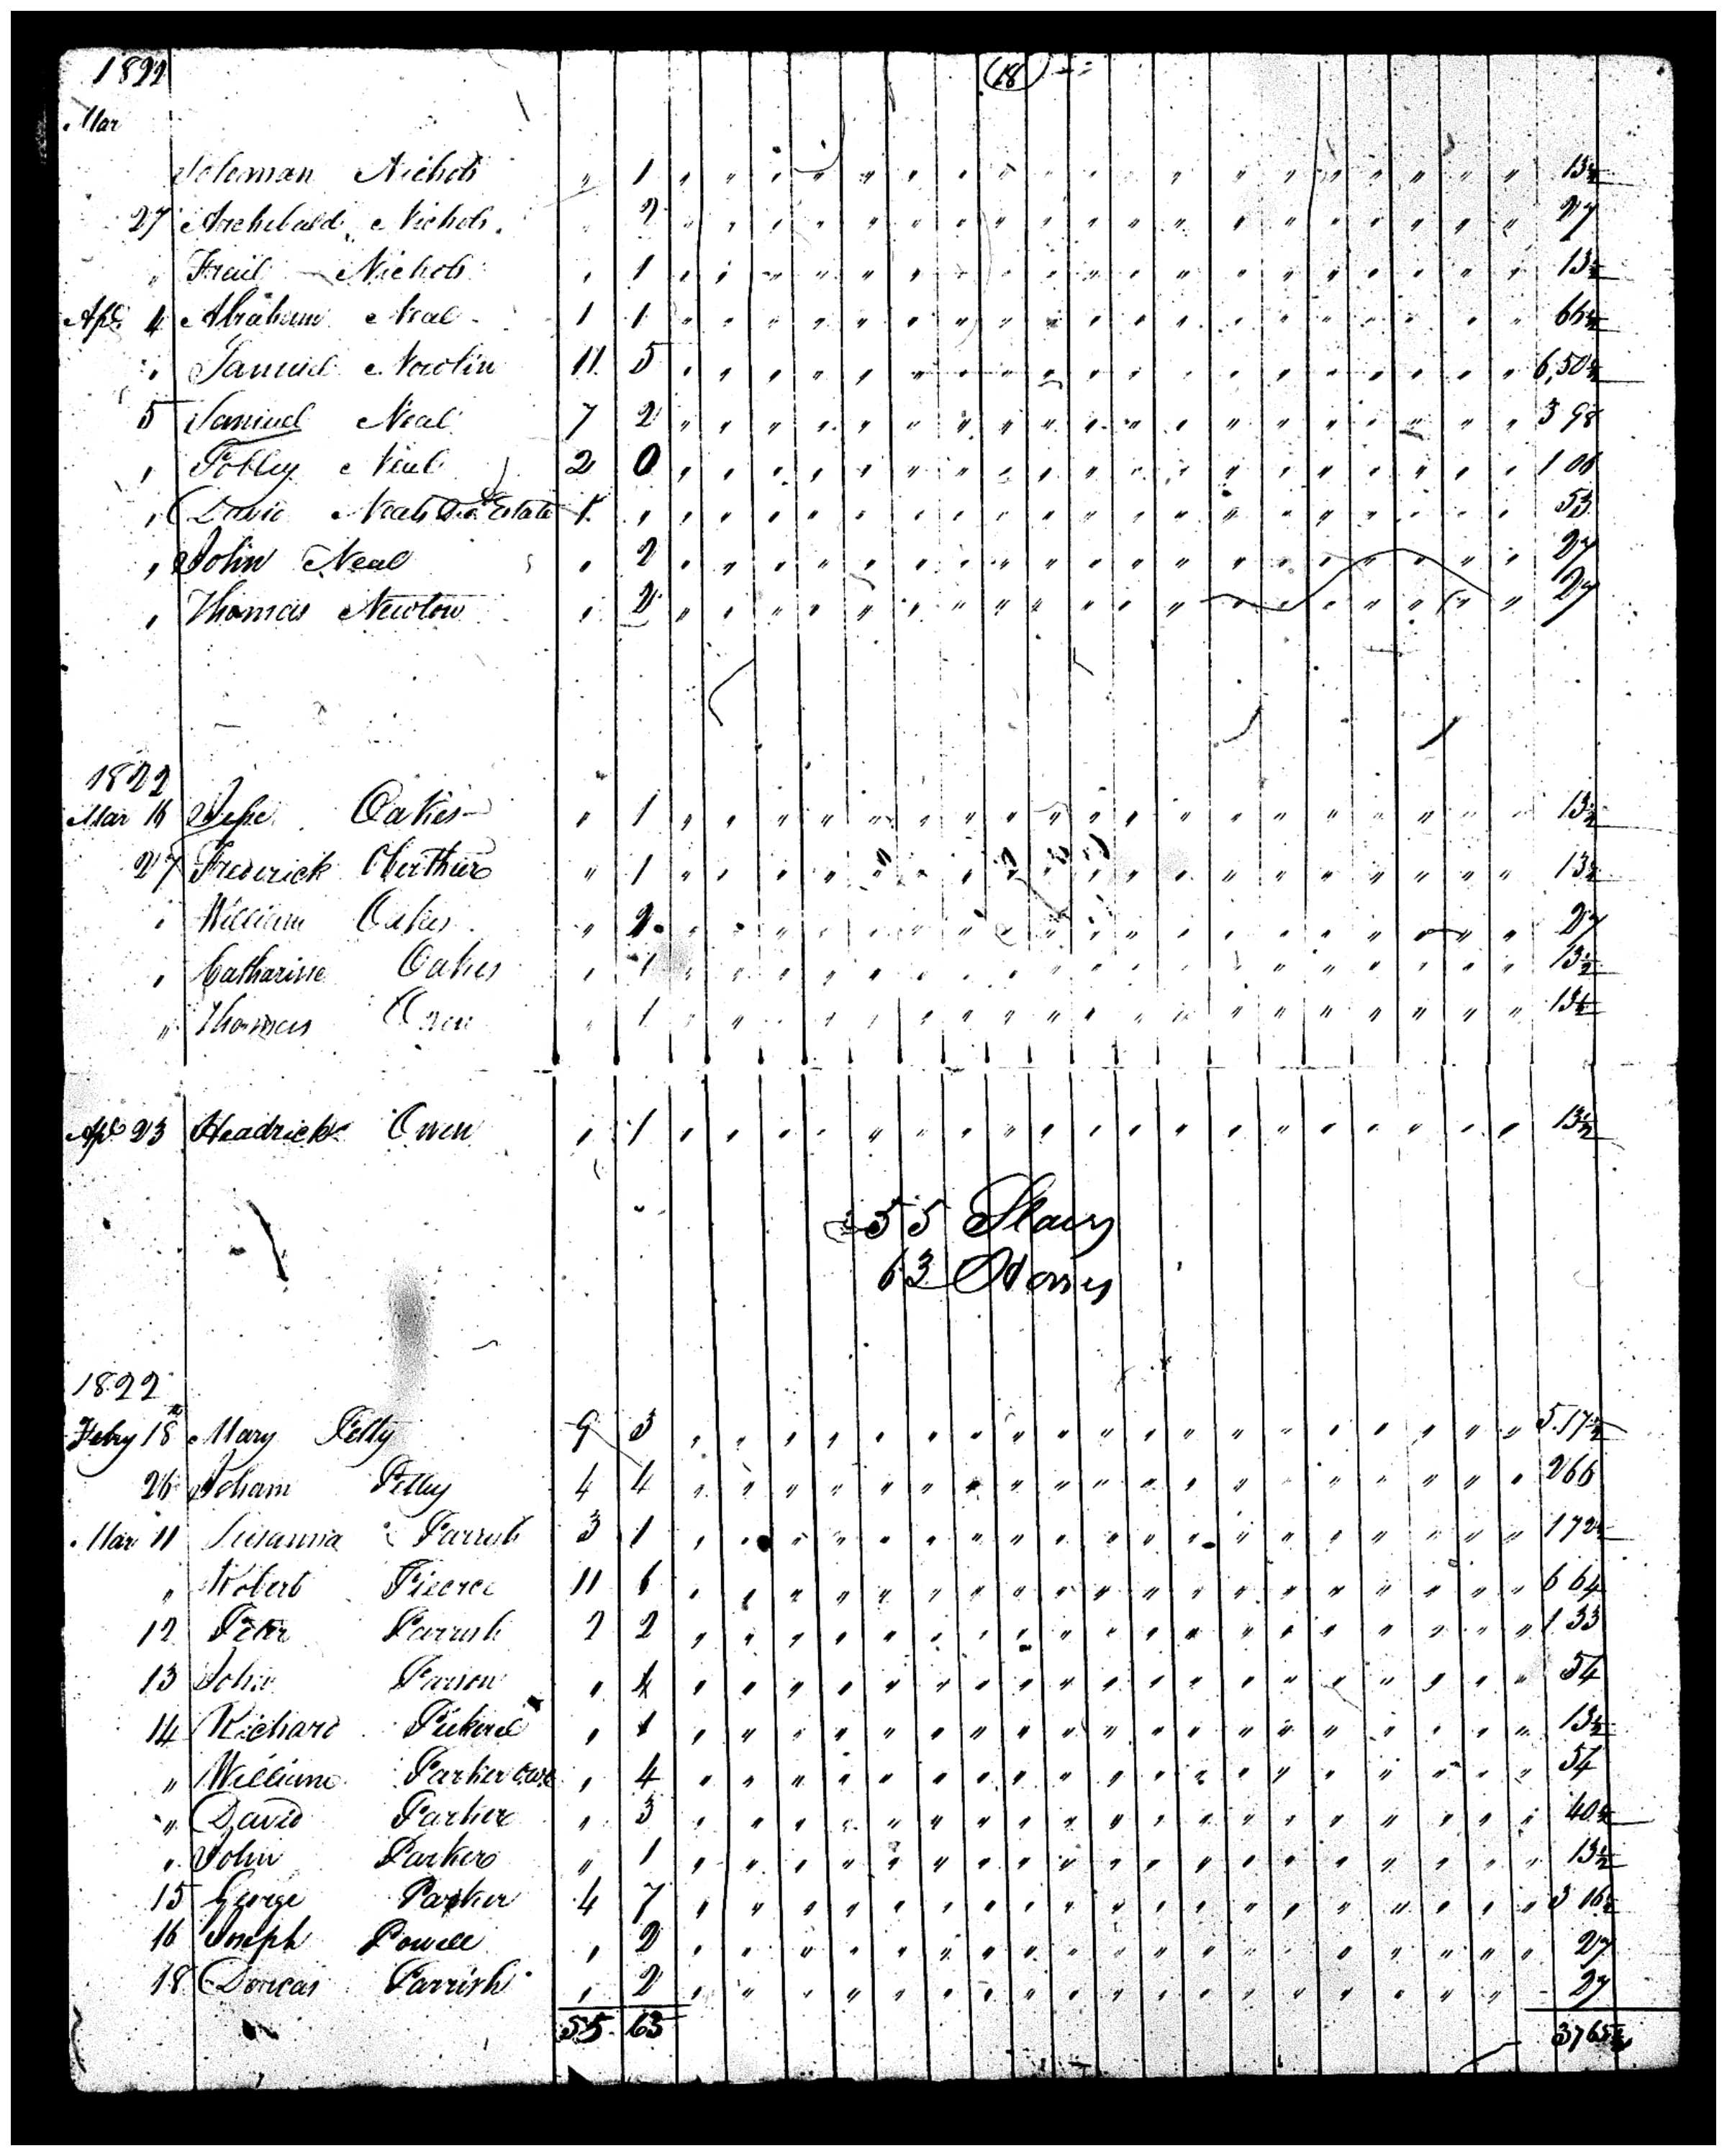 1822 (18)
Mar
Soloman Nichols " 1 13½
27 Archibald Nichols " 2 27
" Frail Nichols " 1 13½
Apl. 4 Abraham Neal 1 1 66½
" Samuel Nowlin 11 5 6,50½
5 Samuel Neal 7 2 3 98
" Polley Neal 2 0 1 06
" David Neals Estate 1 " 53
" John Neal " 2 27
" Thomas Newton " 2 27
1822
Mar 16 Jesse Oakes " 1 13½
27 Frederick " 1 13½
" William Oakes " 2 27
" Catharine Oakes " 1 13½
" Thomas Owen " 1 13½
Apl 23 Headrick Owen " 1 13½
55 Slaves
63 Horses
1822
Feby 18th Mary Petty 9 3 5.17½
26 Petty 4 4 2 66
Mar 11 Susanna Parrish 3 1 1 72½
" Robert Pierce 11 6 6 64
12 Peter Parrish 2 2 1 33
13 John Parson " 4 54
14 Richard Pickeral " 1 13½
" William Parker " 4 54
" David Parker " 3 40½
" John Parker " 1 13½
15 George Parker 4 7 3 16½
16 Joseph Powell " 2 27
18 Dorcas Parrish " 2 27
55 63 3765½